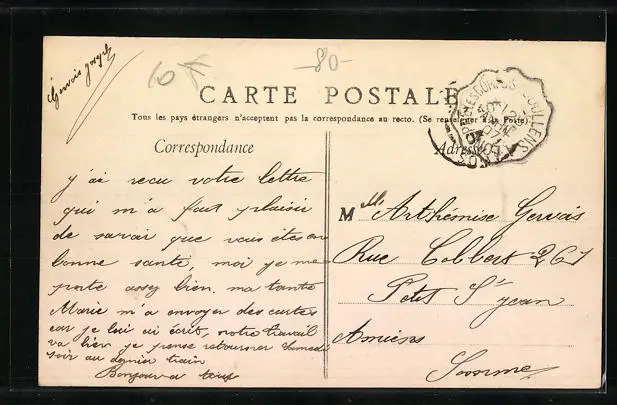 Gervais Joseph
10 F
-80-
CARTE POSTALE
Tous les pays étrangers n'acceptent pas la correspondance au recto. (Se renseigner à la Poste).
Correspondance
Adresse
j'ai recu votre lettre
qui m'a fait plaisir
de savoir que vous êtes en
bonne santé, moi je me
porte assez bien. ma tante
Marie m'a envoyer des cartes
car je lui ai écrit, notre travail
va bien je pense retourner Samedi
soir au dernier train
Bonjour a tous
M elle Arthémise Gervais
Rue Colbert 267
Petit St jean
Amiens
Somme
DOULLENS